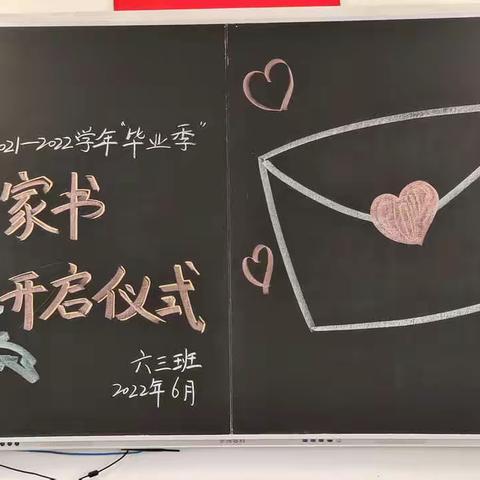 2021—2022学年"毕业季"
家书
开启仪式
六三班
2022年6月